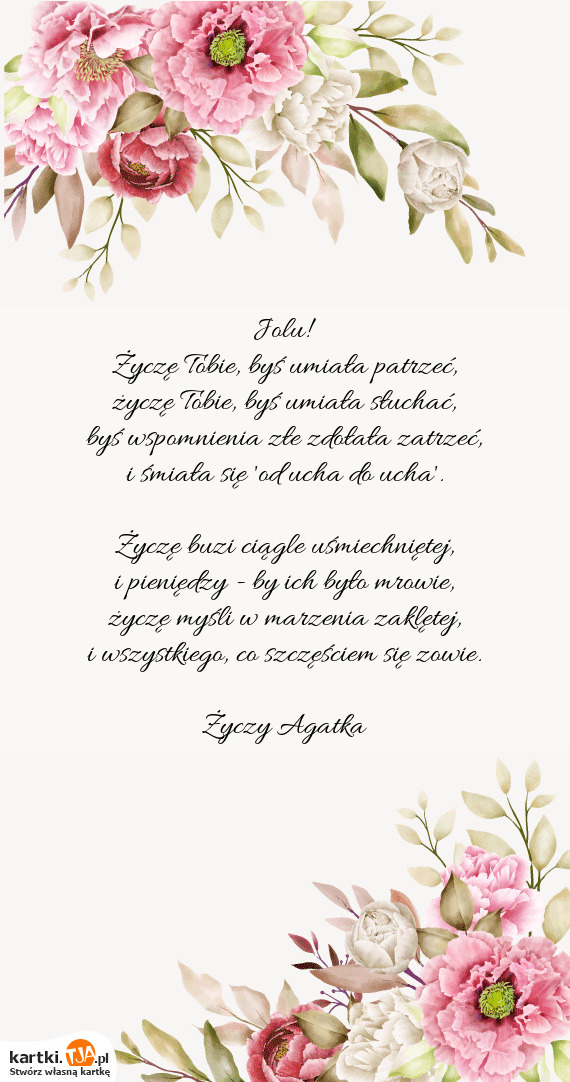 Jolu!
Życzę Tobie, byś umiała patrzeć,
życzę Tobie, byś umiała słuchać,
byś wspomnienia złe zdołała zatrzeć,
i śmiała się 'od ucha do ucha'.
Życzę buzi ciągle uśmiechniętej,
i pieniędzy - by ich było mrowie,
życzę myśli w marzenia zaklętej,
i wszystkiego, co szczęściem się zowie.
Życzy Agatka
kartki.TJA.pl
Stwórz własną kartkę